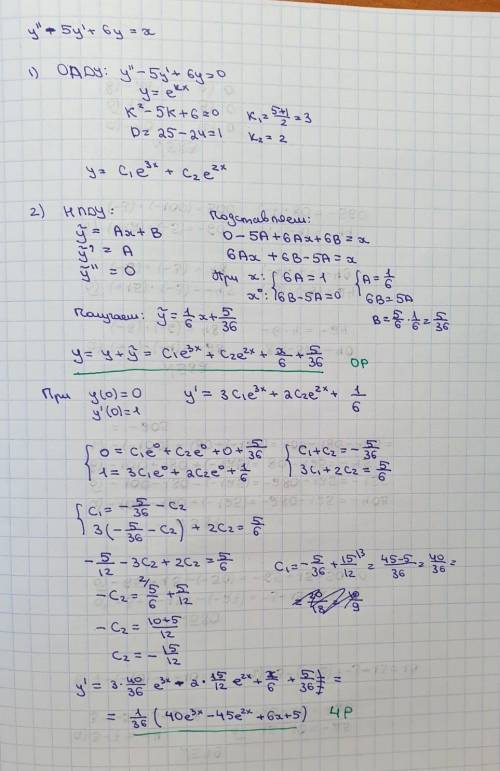 y'' - 5y' + 6y = x
1) ОЛДУ: y'' - 5y' + 6y = 0
y = e^{kx}
k² - 5k + 6 = 0    k₁ = \frac{5+1}{2} = 3
D = 25 - 24 = 1    k₂ = 2
y = C₁e^{3x} + C₂e^{2x}
2) НЛДУ:
ỹ = Ax + B
ỹ' = A
ỹ'' = 0
Подставляем:
0 - 5A + 6Ax + 6B = x
6Ax + 6B - 5A = x
При x: { 6A = 1    { A = \frac{1}{6}
x⁰: { 6B - 5A = 0    6B = 5A
B = \frac{5}{6} · \frac{1}{6} = \frac{5}{36}
Получаем: ỹ = \frac{1}{6}x + \frac{5}{36}
y = y + ỹ = C₁e^{3x} + C₂e^{2x} + \frac{x}{6} + \frac{5}{36}    ОР
При y(0) = 0    y' = 3C₁e^{3x} + 2C₂e^{2x} + \frac{1}{6}
y'(0) = 1
{ 0 = C₁e⁰ + C₂e⁰ + 0 + \frac{5}{36}    { C₁ + C₂ = -\frac{5}{36}
{ 1 = 3C₁e⁰ + 2C₂e⁰ + \frac{1}{6}    { 3C₁ + 2C₂ = \frac{5}{6}
{ C₁ = -\frac{5}{36} - C₂
{ 3(-\frac{5}{36} - C₂) + 2C₂ = \frac{5}{6}
-\frac{5}{12} - 3C₂ + 2C₂ = \frac{5}{6}    C₁ = -\frac{5}{36} + \frac{15}{12}^{/3} = \frac{45-5}{36} = \frac{40}{36} =
-C₂ = ^{2/}\frac{5}{6} + \frac{5}{12}
-C₂ = \frac{10+5}{12}
C₂ = -\frac{15}{12}
y' = 3 · \frac{40}{36} e^{3x} - 2 · \frac{15}{12} e^{2x} + \frac{x}{6} + \frac{5}{36} =
= \frac{1}{36} (40e^{3x} - 45e^{2x} + 6x + 5)    ЧР